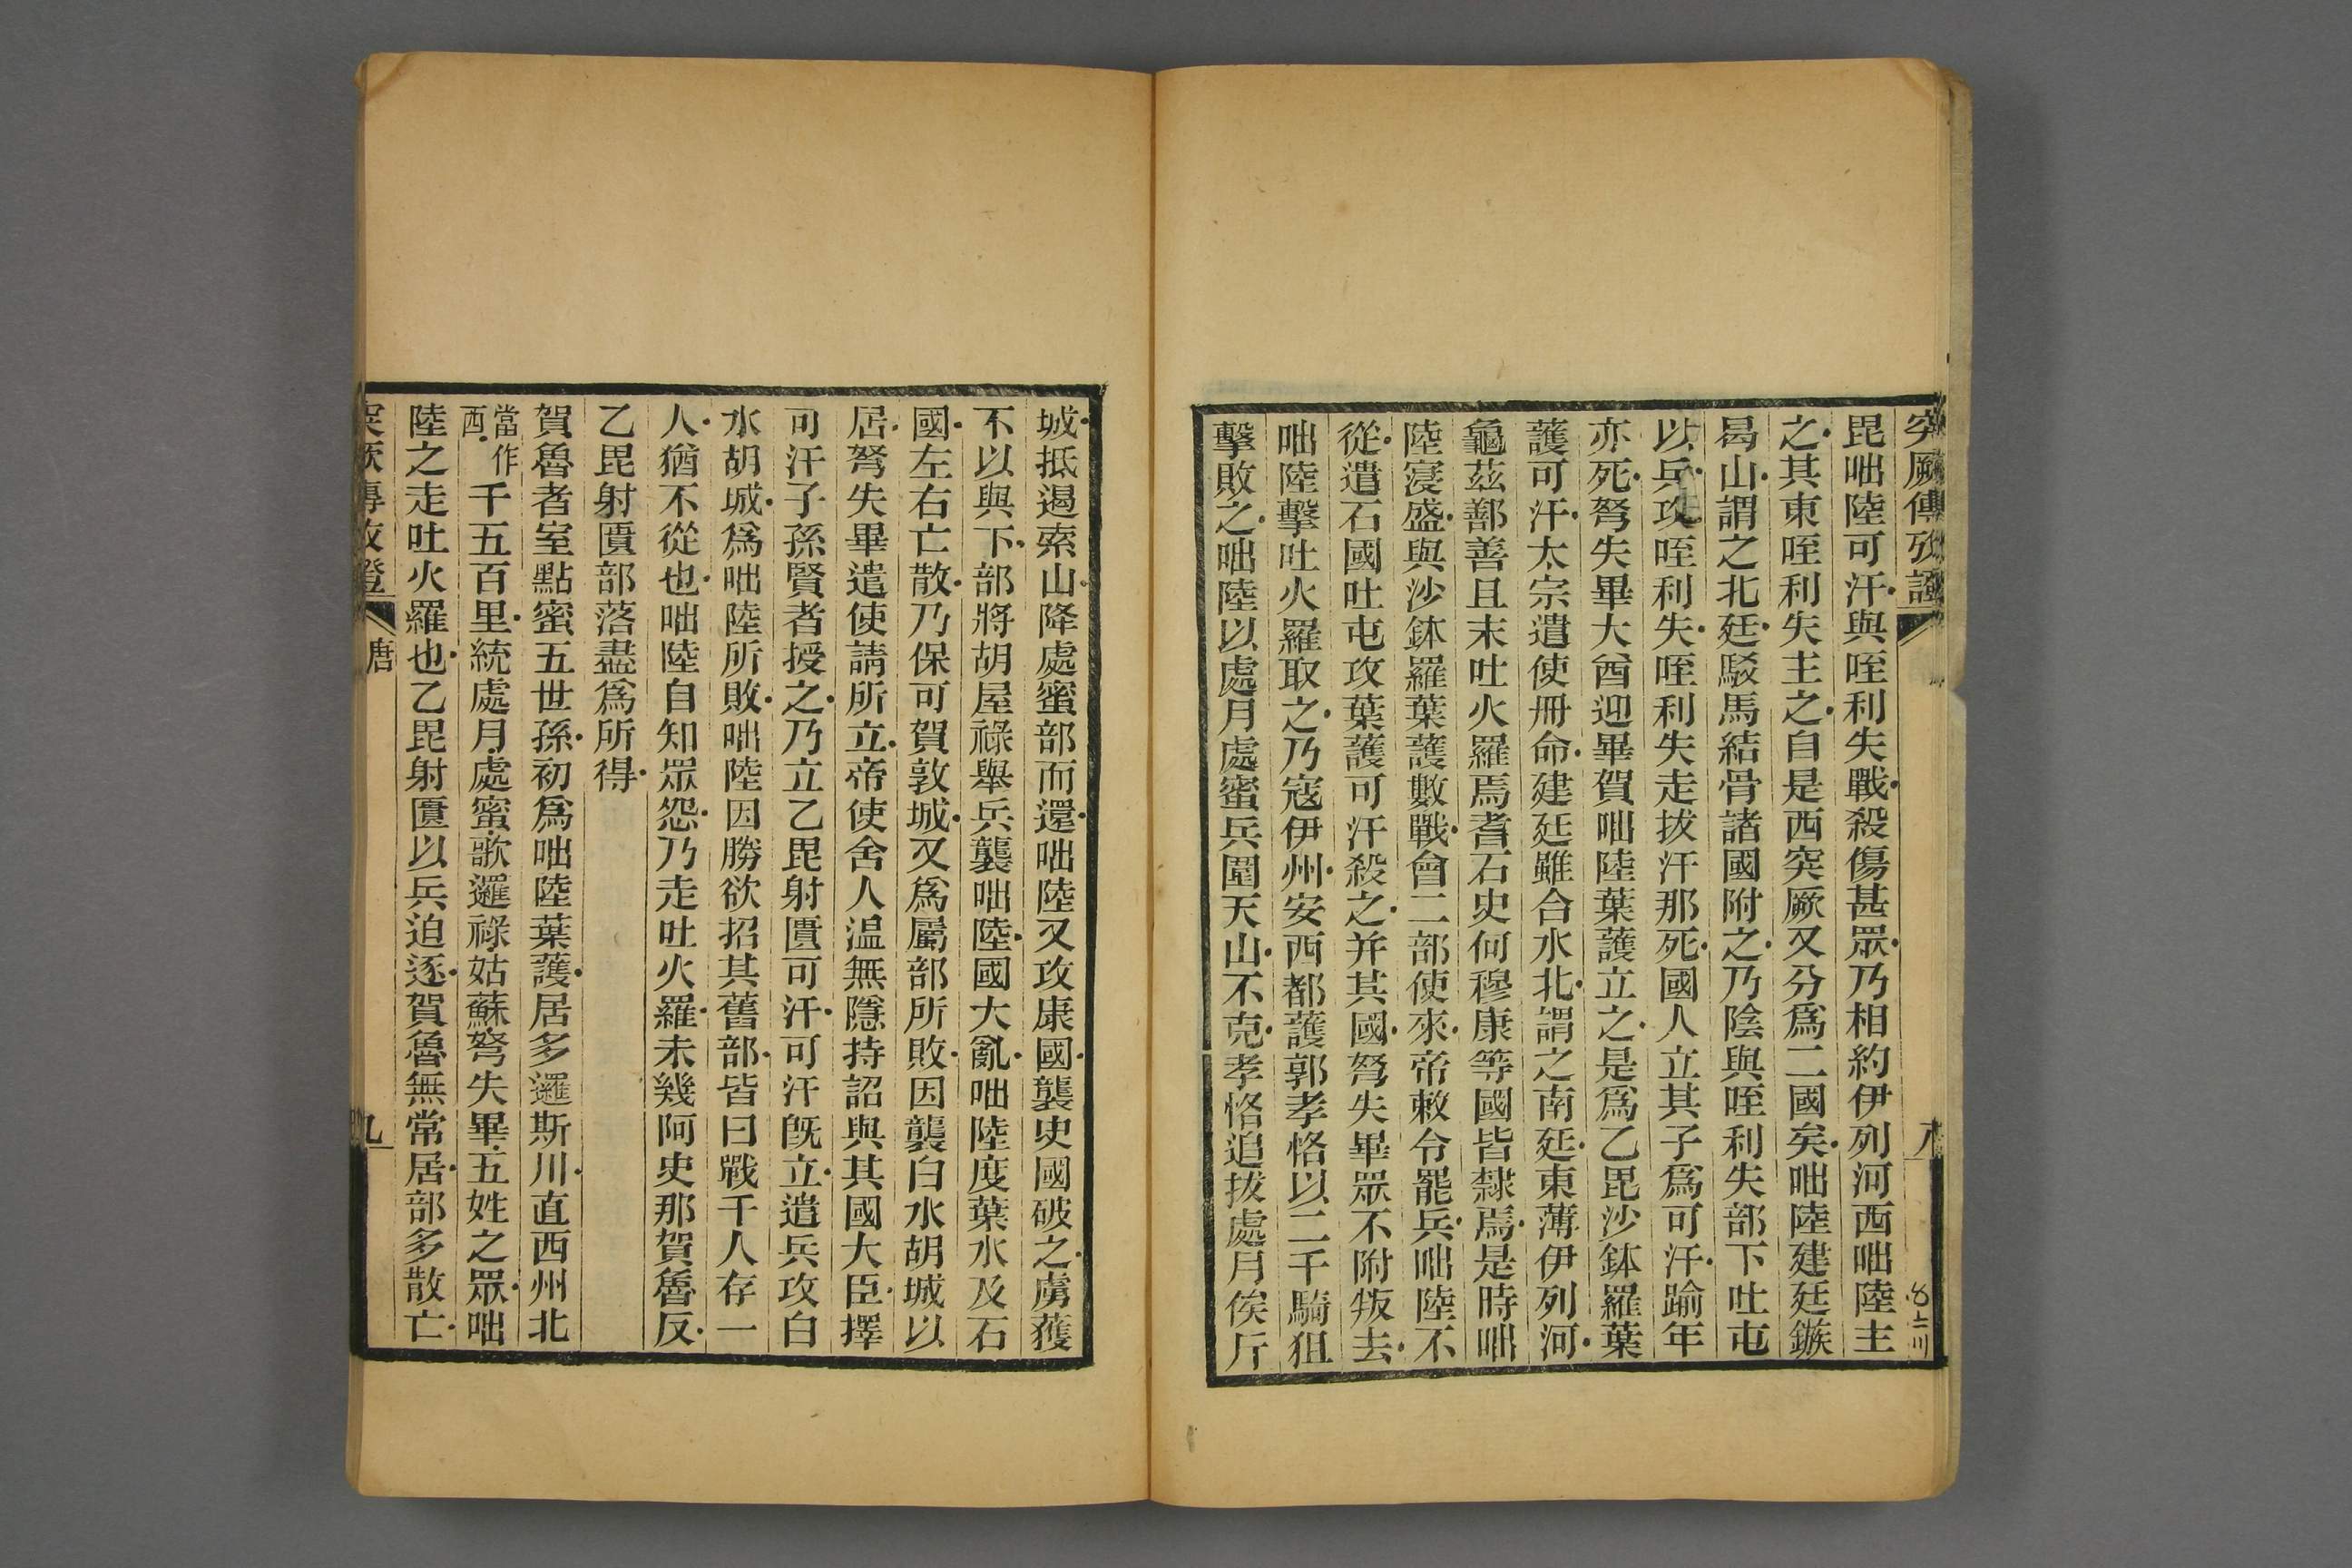 突厥傳攷證
八
毘咄陸可汗與咥利失戰殺傷甚眾乃相約伊列河西咄陸主
之其東咥利失主之自是西突厥又分爲二國矣咄陸建廷鏃
曷山謂之北廷駁馬結骨諸國附之乃陰與咥利失部下吐屯
以兵攻咥利失咥利失走拔汗那死國人立其子爲可汗踰年
亦死弩失畢大酋迎畢賀咄陸葉護立之是爲乙毘沙鉢羅葉
護可汗太宗遣使冊命建廷雖合水北謂之南廷東薄伊列河
龜茲鄯善且末吐火羅焉耆石史何穆康等國皆隸焉是時咄
陸寖盛與沙鉢羅葉護數戰會二部使來帝敕令罷兵咄陸不
從遣石國吐屯攻葉護可汗殺之并其國弩失畢眾不附叛去
咄陸擊吐火羅取之乃寇伊州安西都護郭孝恪以二千騎狙
擊敗之咄陸以處月處蜜兵圍天山不克孝恪追拔處月俟斤
城抵遏索山降處蜜部而還咄陸又攻康國襲史國破之虜獲
不以與下部將胡屋祿舉兵襲咄陸國大亂咄陸度葉水及石
國左右亡散乃保可賀敦城又爲屬部所敗因襲白水胡城以
居弩失畢遣使請所立帝使舍人温無隱持詔與其國大臣擇
可汗子孫賢者授之乃立乙毘射匱可汗可汗旣立遣兵攻白
水胡城爲咄陸所敗咄陸因勝欲招其舊部皆曰戰千人存一
人猶不從也咄陸自知眾怨乃走吐火羅未幾阿史那賀魯反
乙毘射匱部落盡爲所得
賀魯者室點蜜五世孫初爲咄陸葉護居多邏斯川直西州北
當作西千五百里統處月處蜜歌邏祿姑蘇弩失畢五姓之眾咄
陸之走吐火羅也乙毘射匱以兵迫逐賀魯無常居部多散亡
突厥傳攷證
唐
九